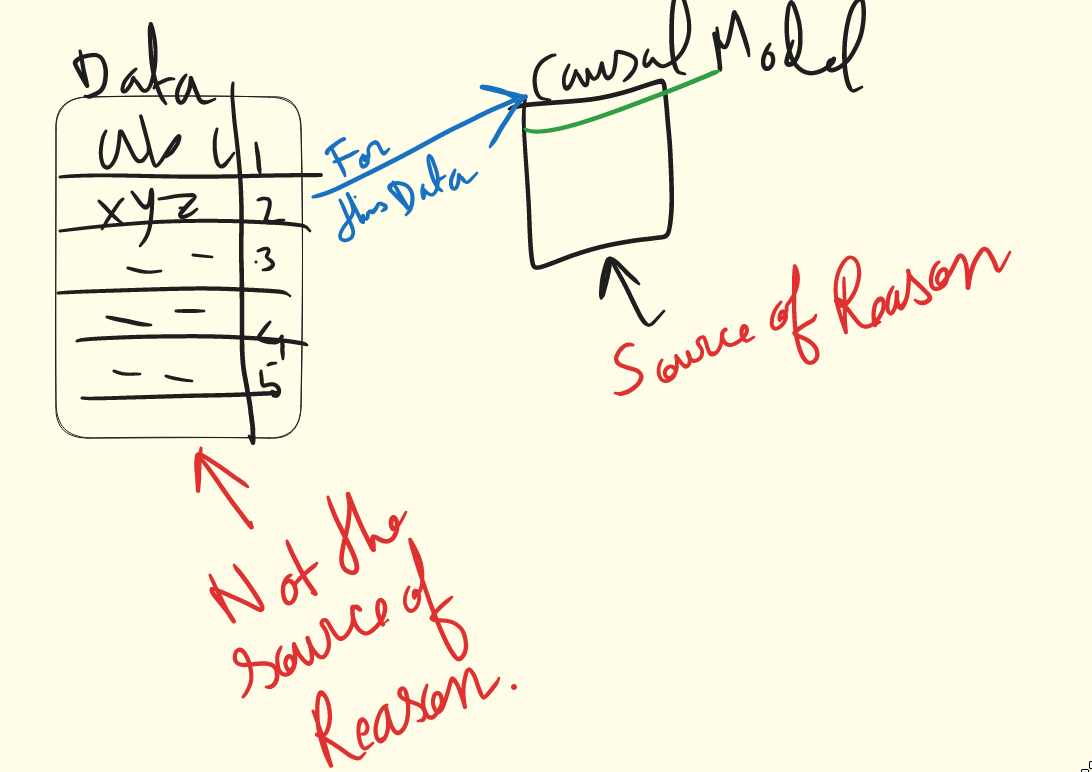 Data
1
xyz 2
3
4
5
For
this Data
Causal Model
Source of Reason
Not the
source of
Reason.